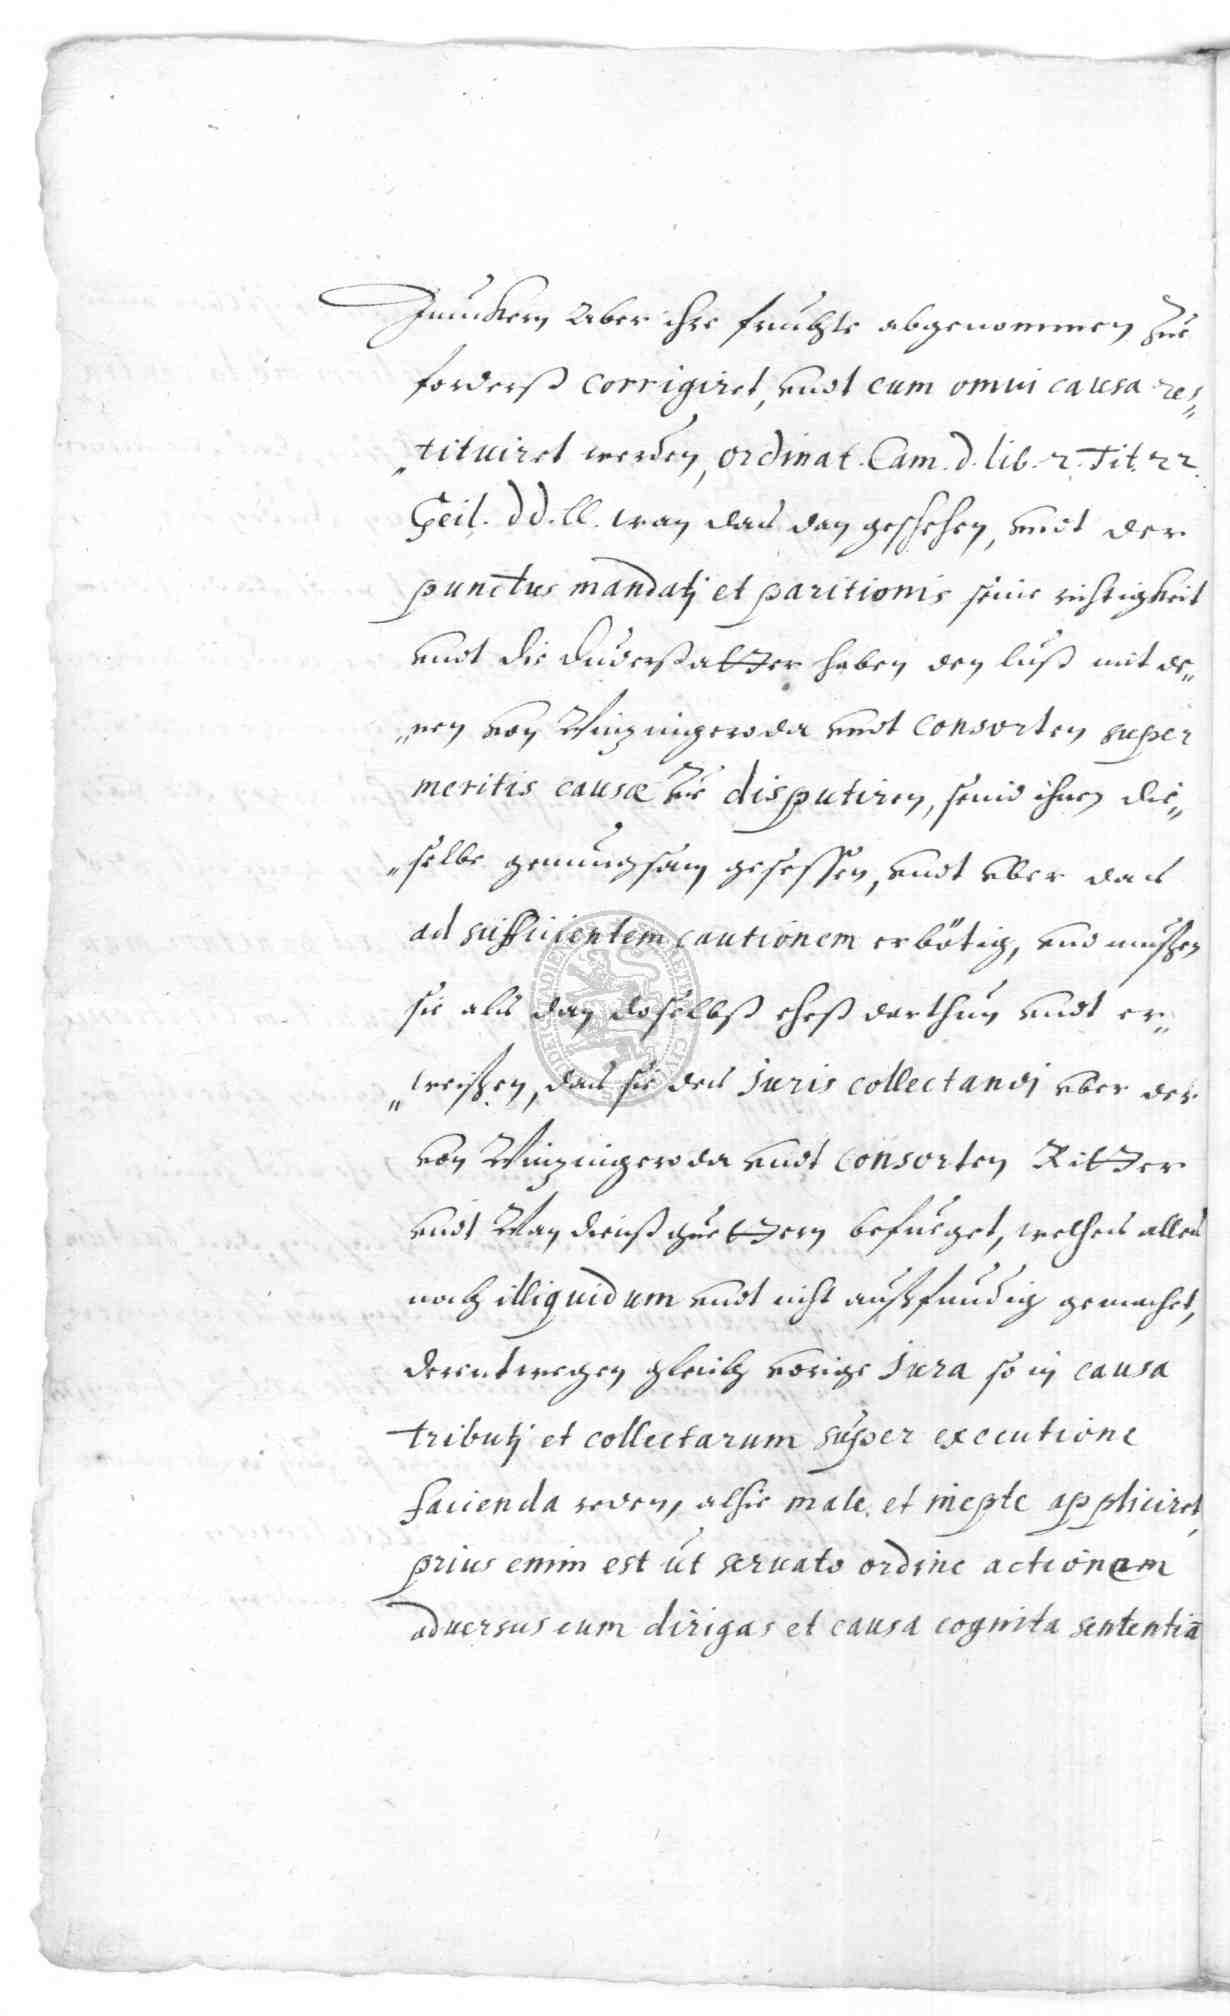 Junckern Aber ihre fruchte abgenommen zue
forderst corrigiret, undt cum omni causa res„
„tituiret werden, ordinat. Cam. d. lib. 2. Tit. 22.
Geil. dd. ll. wan das dan geschehen, undt der
punctus mandatj et paritionis seine richtigkeit
undt die Duderstatter haben den lust mit de„
„nen von Wintzingeroda undt Consorten super
meritis causæ zue disputiren, seind ihnen die„
„selbe genungsam gesessen, undt uber das
ad sufficientem cautionem erbötig, und mussen
sie als dan daselbst ehest darthun undt er„
„weisen, das sie des Juris collectandj uber der
von Wintzingeroda undt Consorten Ritter
undt Man dienst guettern befueget, welches alles
noch illiquidum undt nicht aussfundig gemachet,
derentwegen gleich vorige Jura so in causa
tributj et collectarum super executione
facienda reden, alhie male et inepte appliciret,
prius enim est ut seruato ordine actionem
aduersus eum dirigas et causa cognita sententiā